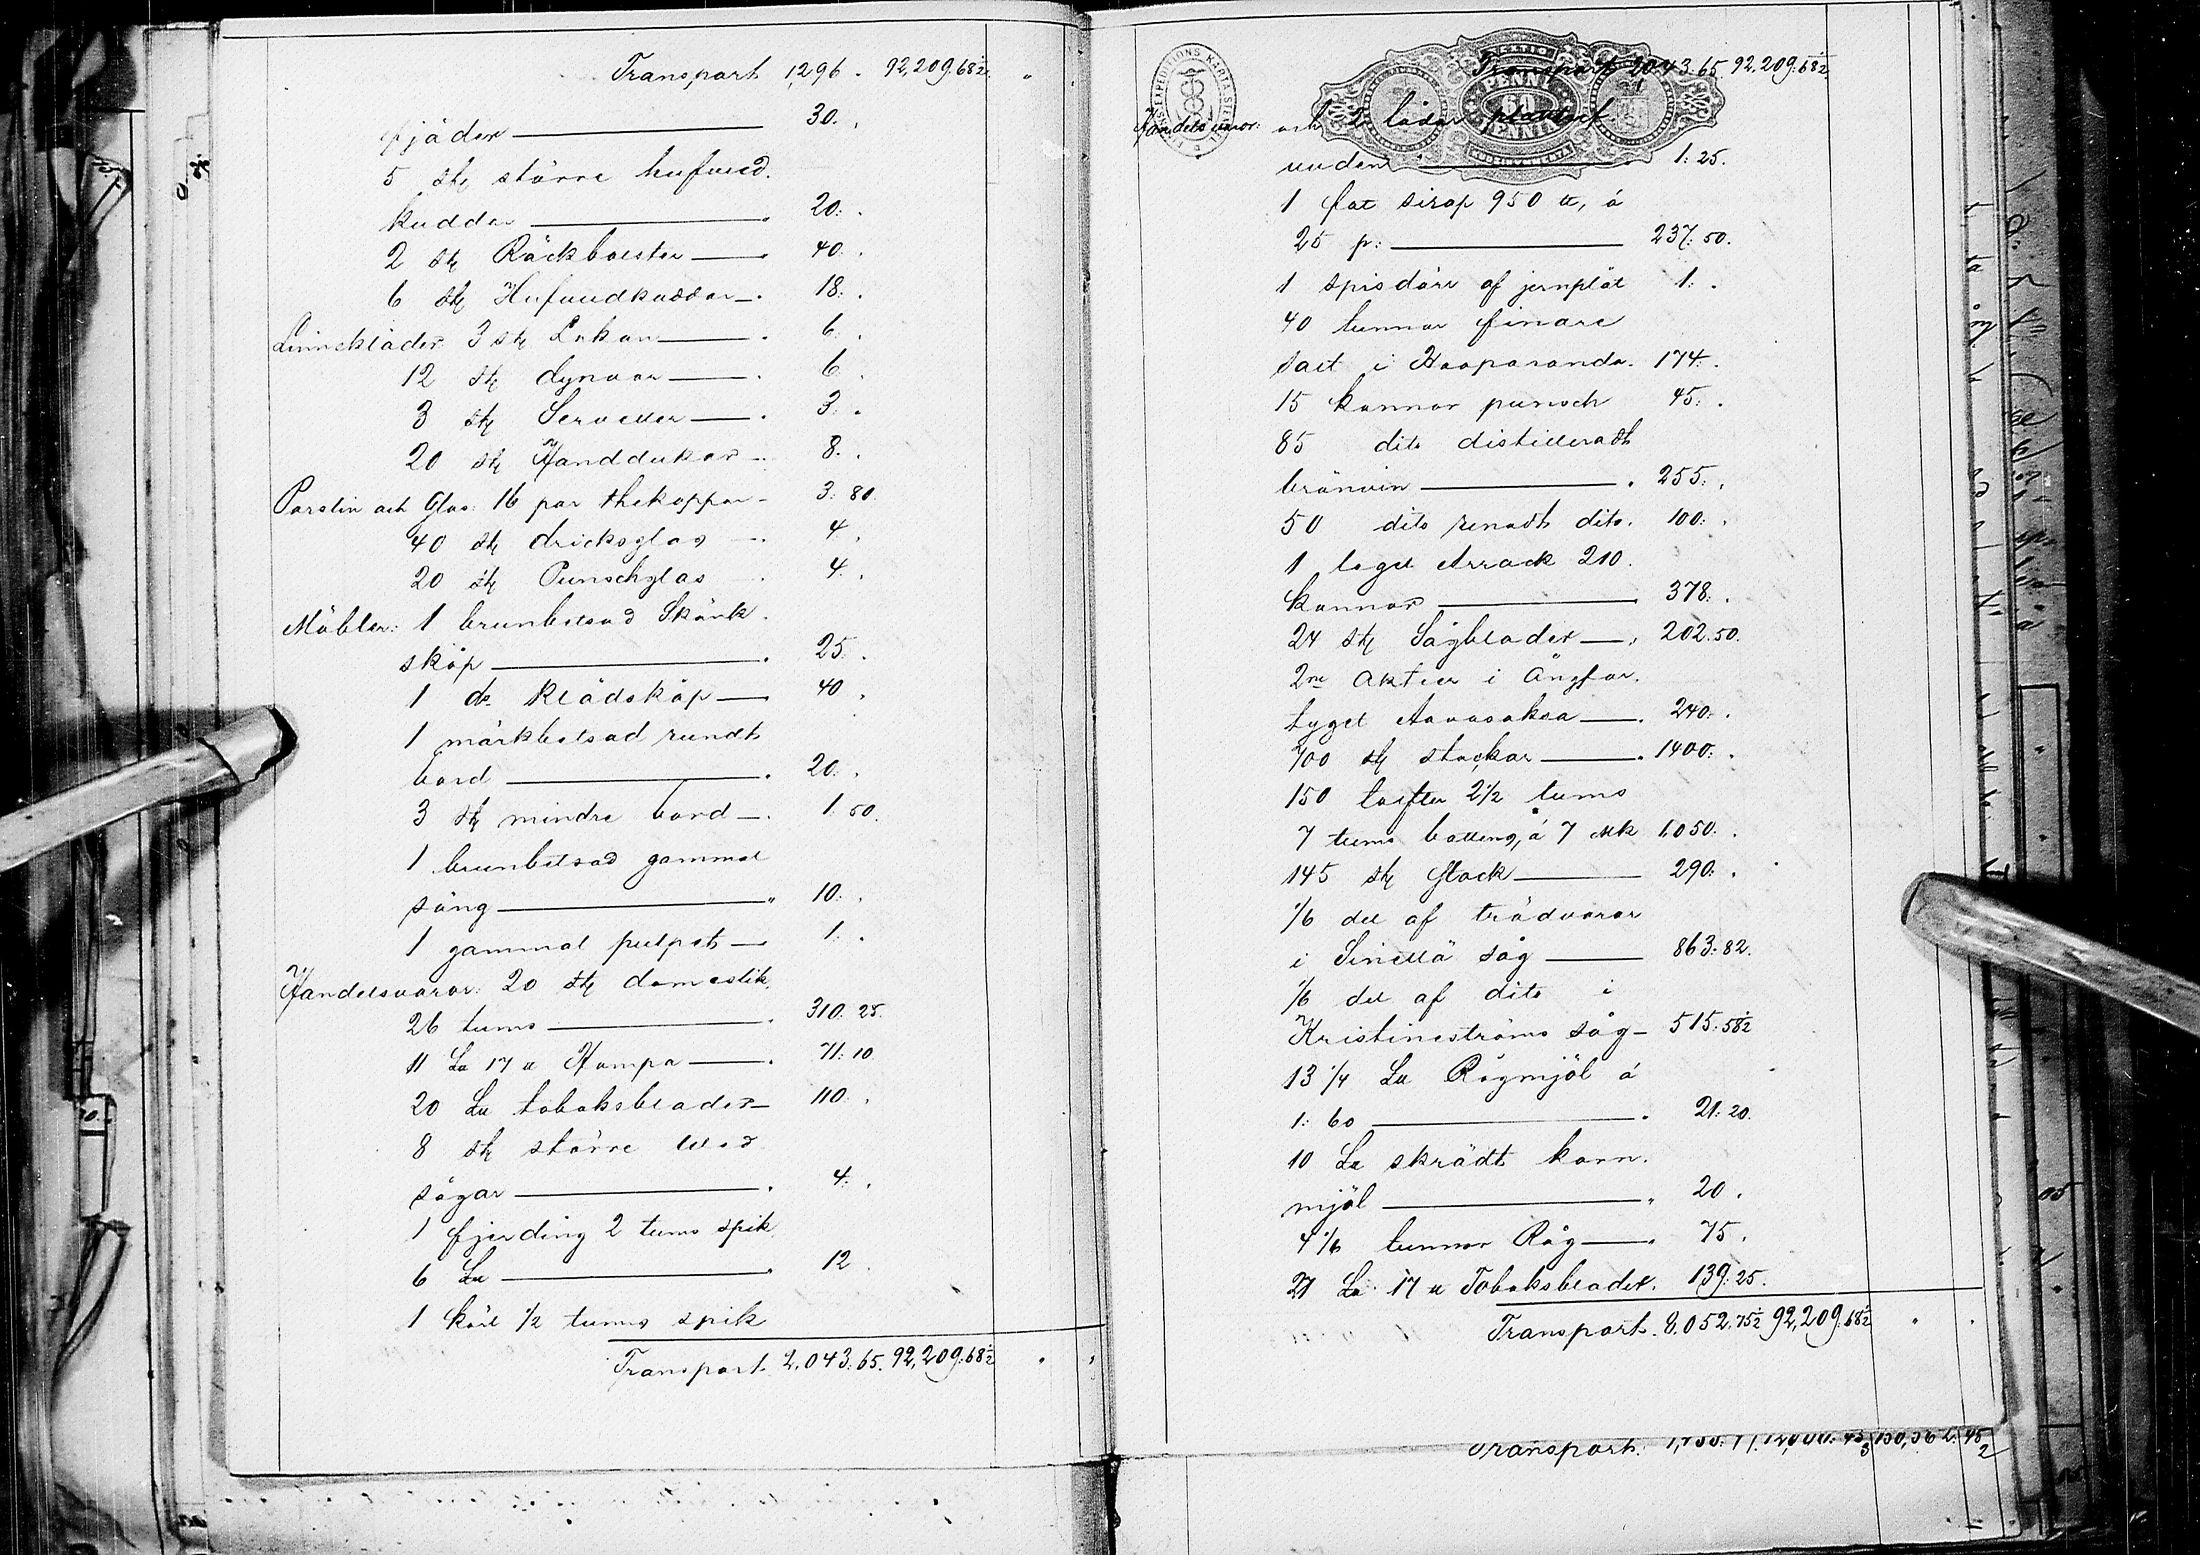 Transport 1,296. 92,209.68½
fjäder 30.
5 stk större hufvud.
kuddar 20:
2 stk Räckbolster 40.
6 stk Hufvudkuddar 18:
Linnekläder 3 stk Lakan 6.
12 stk dynvar 6.
3 stk Servetter 3:
20 stk Handdukar 8.
Porslin och Glas: 16 par thekoppar 3:80.
40 stk dricksglas 4.
20 stk Punschglas 4.
Möbler: 1 brunbetsad Skänk.
skåp 25.
1 do Klädskåp 40.
1 mörkbetsad rundt
bord 20:
3 stk mindre bord 1:50.
1 brunbetsad gammal
säng 10:
1 gammal pulpet 1:
Handelsvaror: 20 stk domestik,
26 tums 310.25.
11 L℔ 17 ℔ Hampa 71:10.
20 L℔ tobaksblader 110:
8 stk större ved
sågar 4:
1 fjerding 2 tums spik
6 L℔ 12.
1 käril ½ tums spik
Transport 2,043:65. 92,209:68½
Transport 2043.65. 92,209:68½
Handelsvaror: och 2 lådor
1:25.
1 fat sirap 950 ℔, á
25 p: 237:50.
1 spisdörr af jernplåt 1:
40 tunnor finare
salt i Haaparanda. 174:
15 kannor punsch 45:
85 dito distilleradt
bränvin 255:
50 dito renadt dito. 100:
1 lagel Arrack 210.
kannor 378:
24 stk Sågblader 202.50.
2ne Aktier i Ångfar.
tyget Aavasaksa 240:
700 stk stockar 1400:
150 tolfter 2½ tums
7 tums battens, á 7 Mk 1,050:
145 stk stock 290:
1/6 del af trädvaror
i Sinettä såg 863:82.
1/6 del af dito i
Kristineströms såg 515:58½
13 1/4 L℔ Rågmjöl á
1:60 21:20.
10 L℔ skrädt korn.
mjöl 20.
4 1/6 tunnor Råg 75.
27 L℔ 17 ℔ Tobaksblader. 139:25.
Transport. 8,052.75½ 92,209.68½
Transport.